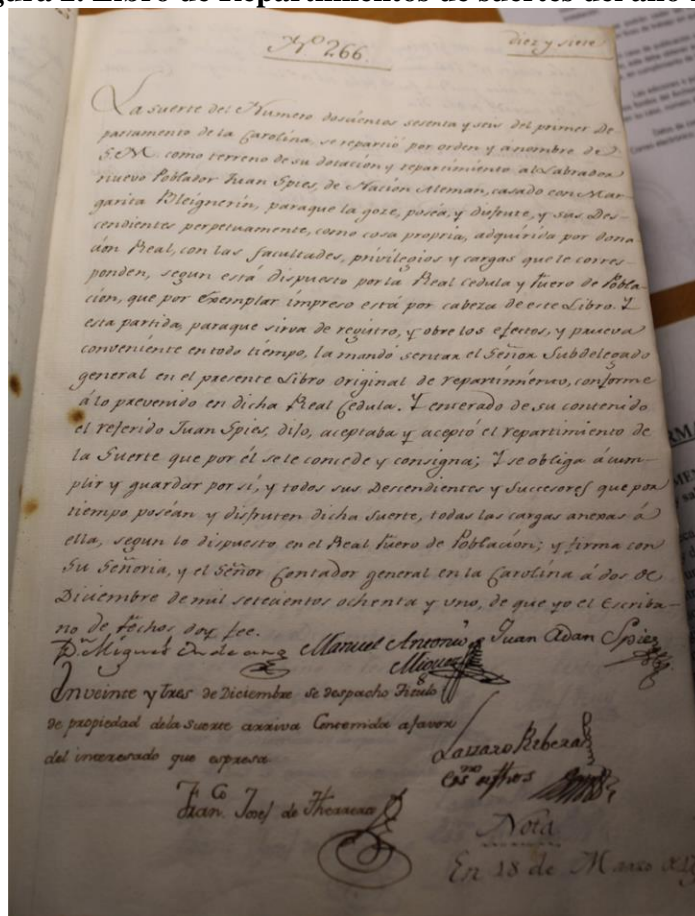 Libro de Repartimientos de suertes del año
Nº 266.
diez y siete
La suerte del Numero doscientos sesenta y seis del primer De-
partamento de la Carolina, se repartió por orden y a nombre de
S.M. como terreno de su dotación y repartimiento al Labrador
nuevo Poblador Juan Spies, de Nación Aleman, casado con Mar-
garita Bleignerin, paraque la goze, posea, y disfrute, y sus Des-
cendientes perpetuamente, como cosa propria, adquirida por dona
ción Real, con las facultades, privilegios y cargas que le corres-
ponden, segun está dispuesto por la Real Cedula y fuero de Pobla-
ción, que por Exemplar impreso está por cabeza de este Libro. Y
esta partida, paraque sirva de registro, y obre los efectos, y prueva
conveniente en todo tiempo, la mandó sentar el Señor Subdelegado
general en el presente Libro original de repartimiento, conforme
á lo prevenido en dicha Real Cedula. Y enterado de su contenido
el referido Juan Spies, dijo, aceptaba y aceptó el repartimiento de
la Suerte que por él se le concede y consigna; Y se obliga á cum-
plir y guardar por sí, y todos sus Descendientes y Succesores que por
tiempo posean y disfruten dicha Suerte, todas las cargas anexas á
ella, segun lo dispuesto en el Real fuero de Población; y firma con
Su Señoria, y el Señor Contador general en la Carolina á dos de
Diciembre de mil setecientos ochenta y uno, de que yo el Escriba-
no de fechos doy fee.
Dn. Miguel Ondeano
Manuel Antonio
Juan Adan Spies
En veinte y tres de Diciembre se despacho Titulo
de propiedad de la suerte arriva Contenida a favor
del interesado que espresa
Lazzaro Ribera
Fran. Josef de Herrera
Nota
En 18 de Marzo